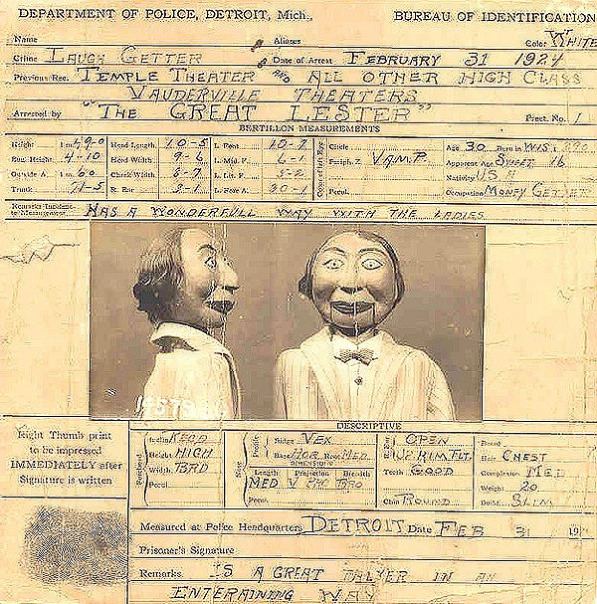 DEPARTMENT OF POLICE, DETROIT, Mich., BUREAU OF IDENTIFICATION
Name Aliases Color WHITE
Crime LAUGH GETTER Date of Arrest FEBRUARY 31 1924
Previous Rec. TEMPLE THEATER AND ALL OTHER HIGH CLASS
VAUDERVILLE THEATERS
Arrested by "THE GREAT LESTER" Prect. No. 1
BERTILLON MEASUREMENTS
Height Head Length 10-5 L. Foot 10-7 Circle Age 30 Born in WIS.
Eng. Height 4-10 Head Width 9-6 L. Mid. F. 6-1 Periph. Z. VAMP. Apparent Age SWEET 16
Outside A. Cheek Width 8-7 L. Lit. F. 5-2 Nativity U.S.A
Trunk 71-5 R. Ear 3-1 L. Fore A. 30-1 Pecul. Occupation MONEY GETTER
Color of Left Eye
HAS A WONDERFULL WAY WITH THE LADIES
DESCRIPTIVE
Right Thumb print
to be impressed
IMMEDIATELY after
Signature is written
Forehead
Height HIGH
Width BRD
Pecul.
Nose
Profile
Ridge VEX
Base HOR Root MED.
DIMENSIONS
Length Projection Breadth
MED
Pecul.
R. Ear
OPEN
Teeth GOOD
Chin ROUND
Beard
Hair CHEST
Complexion MED
Weight 20
Build SLIM
Measured at Police Headquarters DETROIT Date FEB 31 19
Prisoner's Signature
Remarks IS A GREAT TALKER IN AN
ENTERAINING WAY